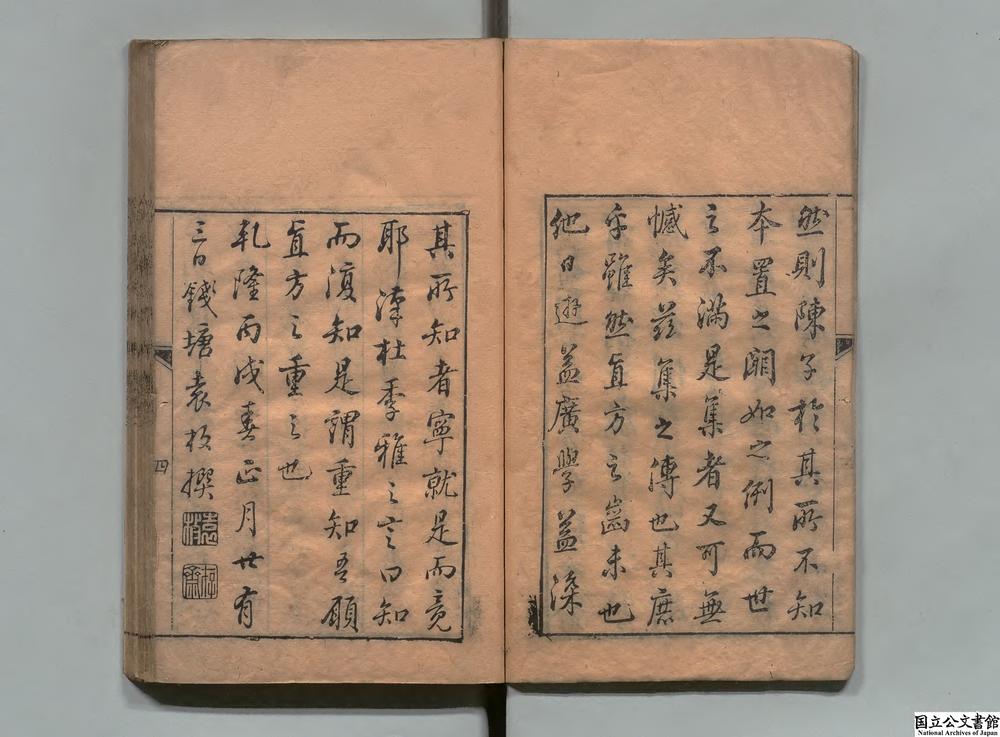 然則陳子於其所不知
本置之闕如之例而世
之不滿是集者又可無
憾矣茲集之傳也其庶
乎雖然直方之齒未也
他日遊益廣學益深
其所知者寧就是而竟
耶譚杜季雅之言曰知
而復知是謂重知吾願
直方之重之也
乾隆丙戌春正月廿有
三日錢塘袁枚撰
四
国立公文書館
National Archives of Japan